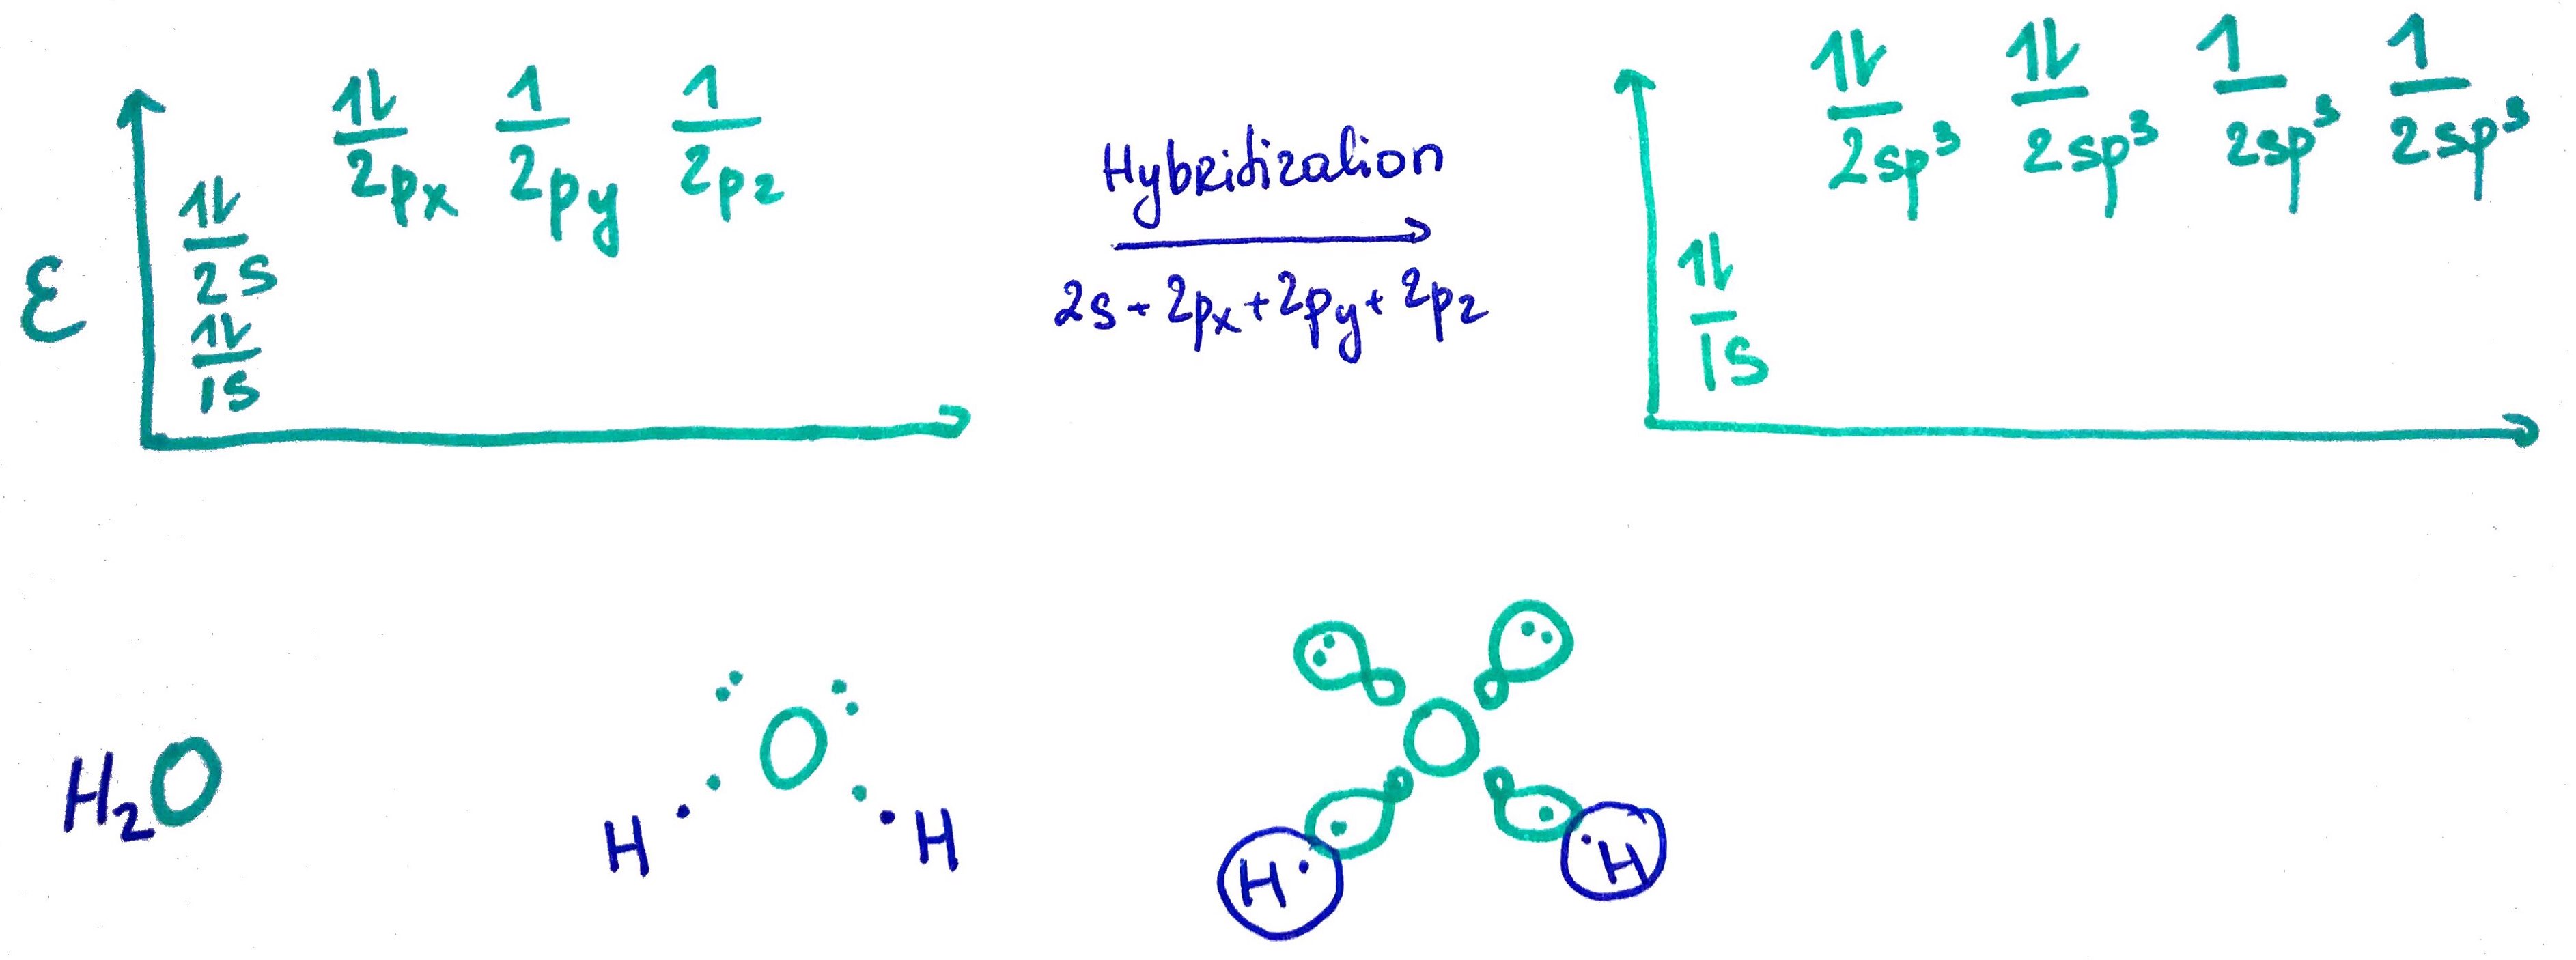 ε
1↓ 1 1
2px 2py 2pz
1↓
2s
1↓
1s
Hybridization
2s + 2px + 2py + 2pz
1↓ 1↓ 1 1
2sp³ 2sp³ 2sp³ 2sp³
1↓
1s
H₂O
O
H H
O
H H